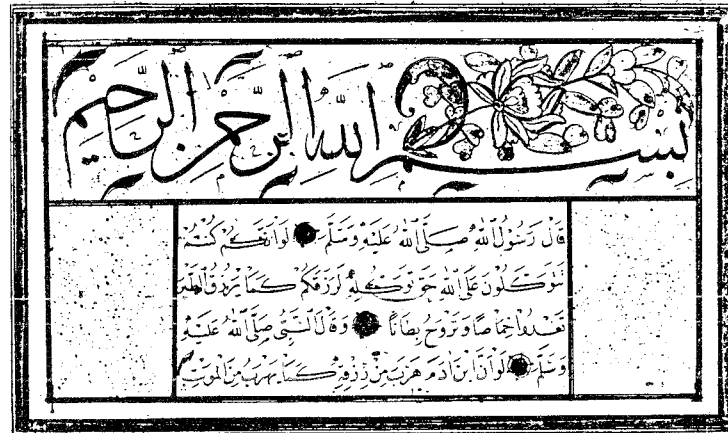 بسم الله الرحمن الرحيم
قال رسول الله صلى الله عليه وسلم لو أنكم كنتم
توكلون على الله حق توكله لرزقكم كما يرزق الطير
تغدوا خماصا وتروح بطانا وقال النبي صلى الله عليه
وسلم لو ان ابن ادم هرب من رزقه كما يهرب من الموت